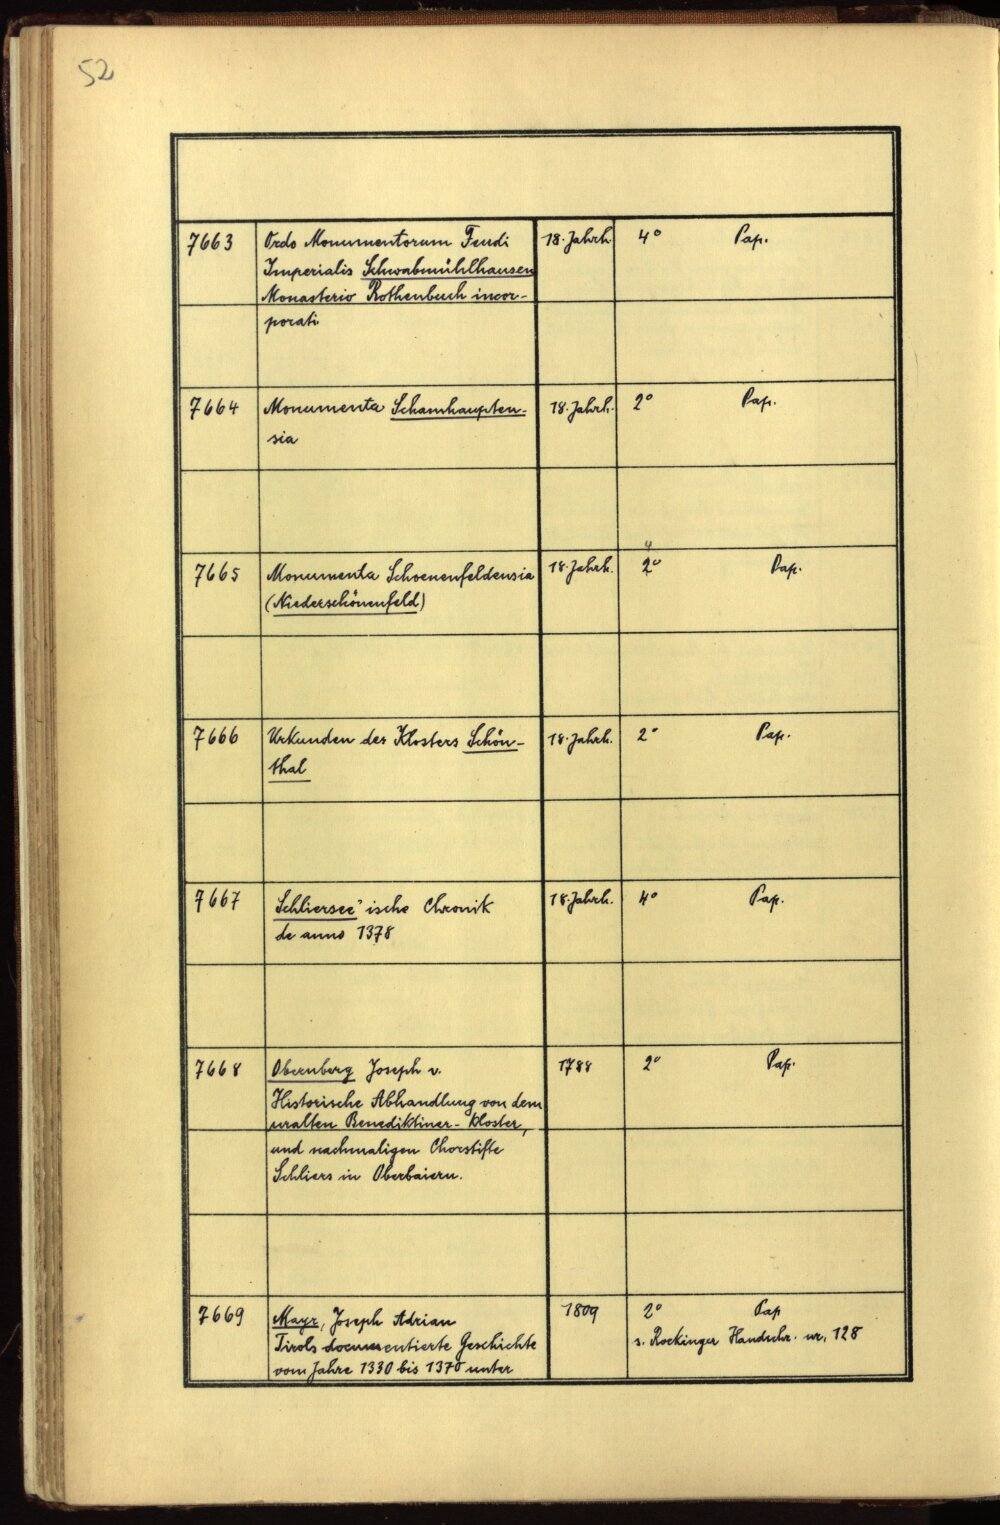 52
7663 Ordo Monumentorum Feudi 18. Jahrh 4° Pap.
Imperialis Schwabmühlhausen
Monasterio Rothenbuch incor-
porati
7664 Monumenta Schamhaupten- 18. Jahrh. 2° Pap.
sia
4
7665 Monumenta Schoenenfeldensia 18. Jahrh. 2° Pap.
(Niederschönenfeld)
7666 Urkunden des Klosters Schön- 18. Jahrh. 2° Pap.
thal
7667 Schliersee'ische Chronik 18. Jahrh. 4° Pap.
de anno 1378
7668 Obernberg Joseph v. 1788 2° Pap.
Historische Abhandlung von dem
uralten Benediktiner-Kloster,
und nachmaligen Chorstifte
Schliers in Oberbaiern.
7669 Mayr, Joseph Adrian 1809 2° Pap
Tirols documentierte Geschichte s. Rockinger Handschr. nr. 128
vom Jahre 1330 bis 1370 unter